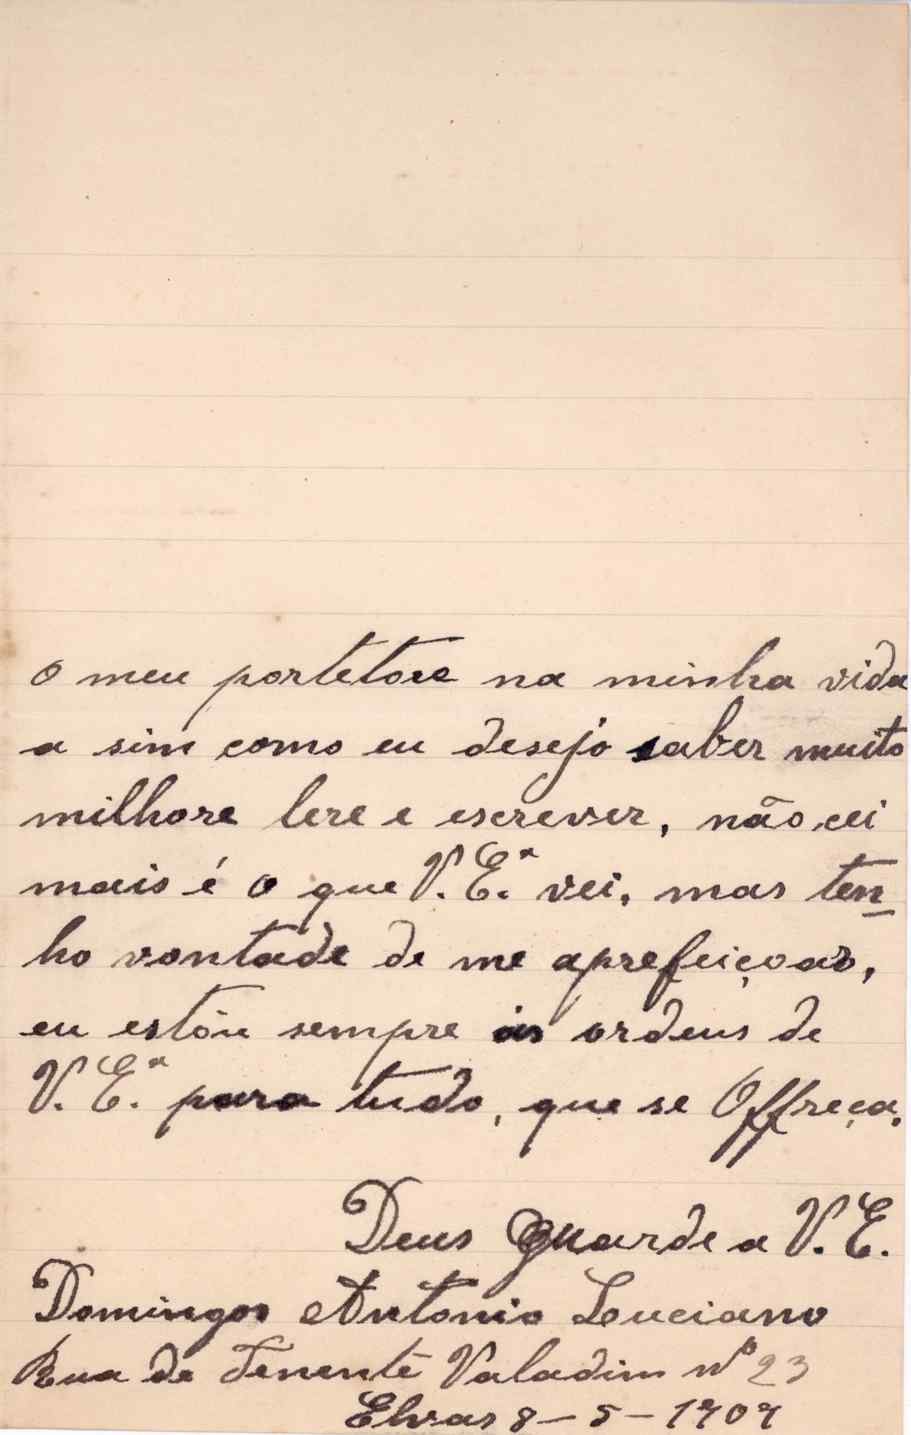 o meu portetore na minha vida
a sim como eu desejo saber muito
milhore lere e escrever, não cei
mais é o que V. E.ª vei, mas ten
ho vontade de me aprefeiçoar,
eu estou sempre ás ordens de
V. E.ª para tudo, que se Offreça.
Deus Guarde a V. E.
Domingos Antonio Luciano
Rua de Tenente Valadim nº 23
Elvas 8-5-1909